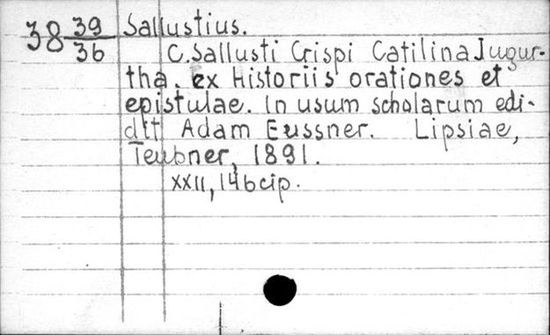 38 39/36 Sallustius.
C. Sallusti Crispi Catilina Jugur-
tha. ex Historiis orationes et
epistulae. In usum scholarum edi-
dit Adam Eussner. Lipsiae,
Teubner, 1891.
XXII, 146 cip.